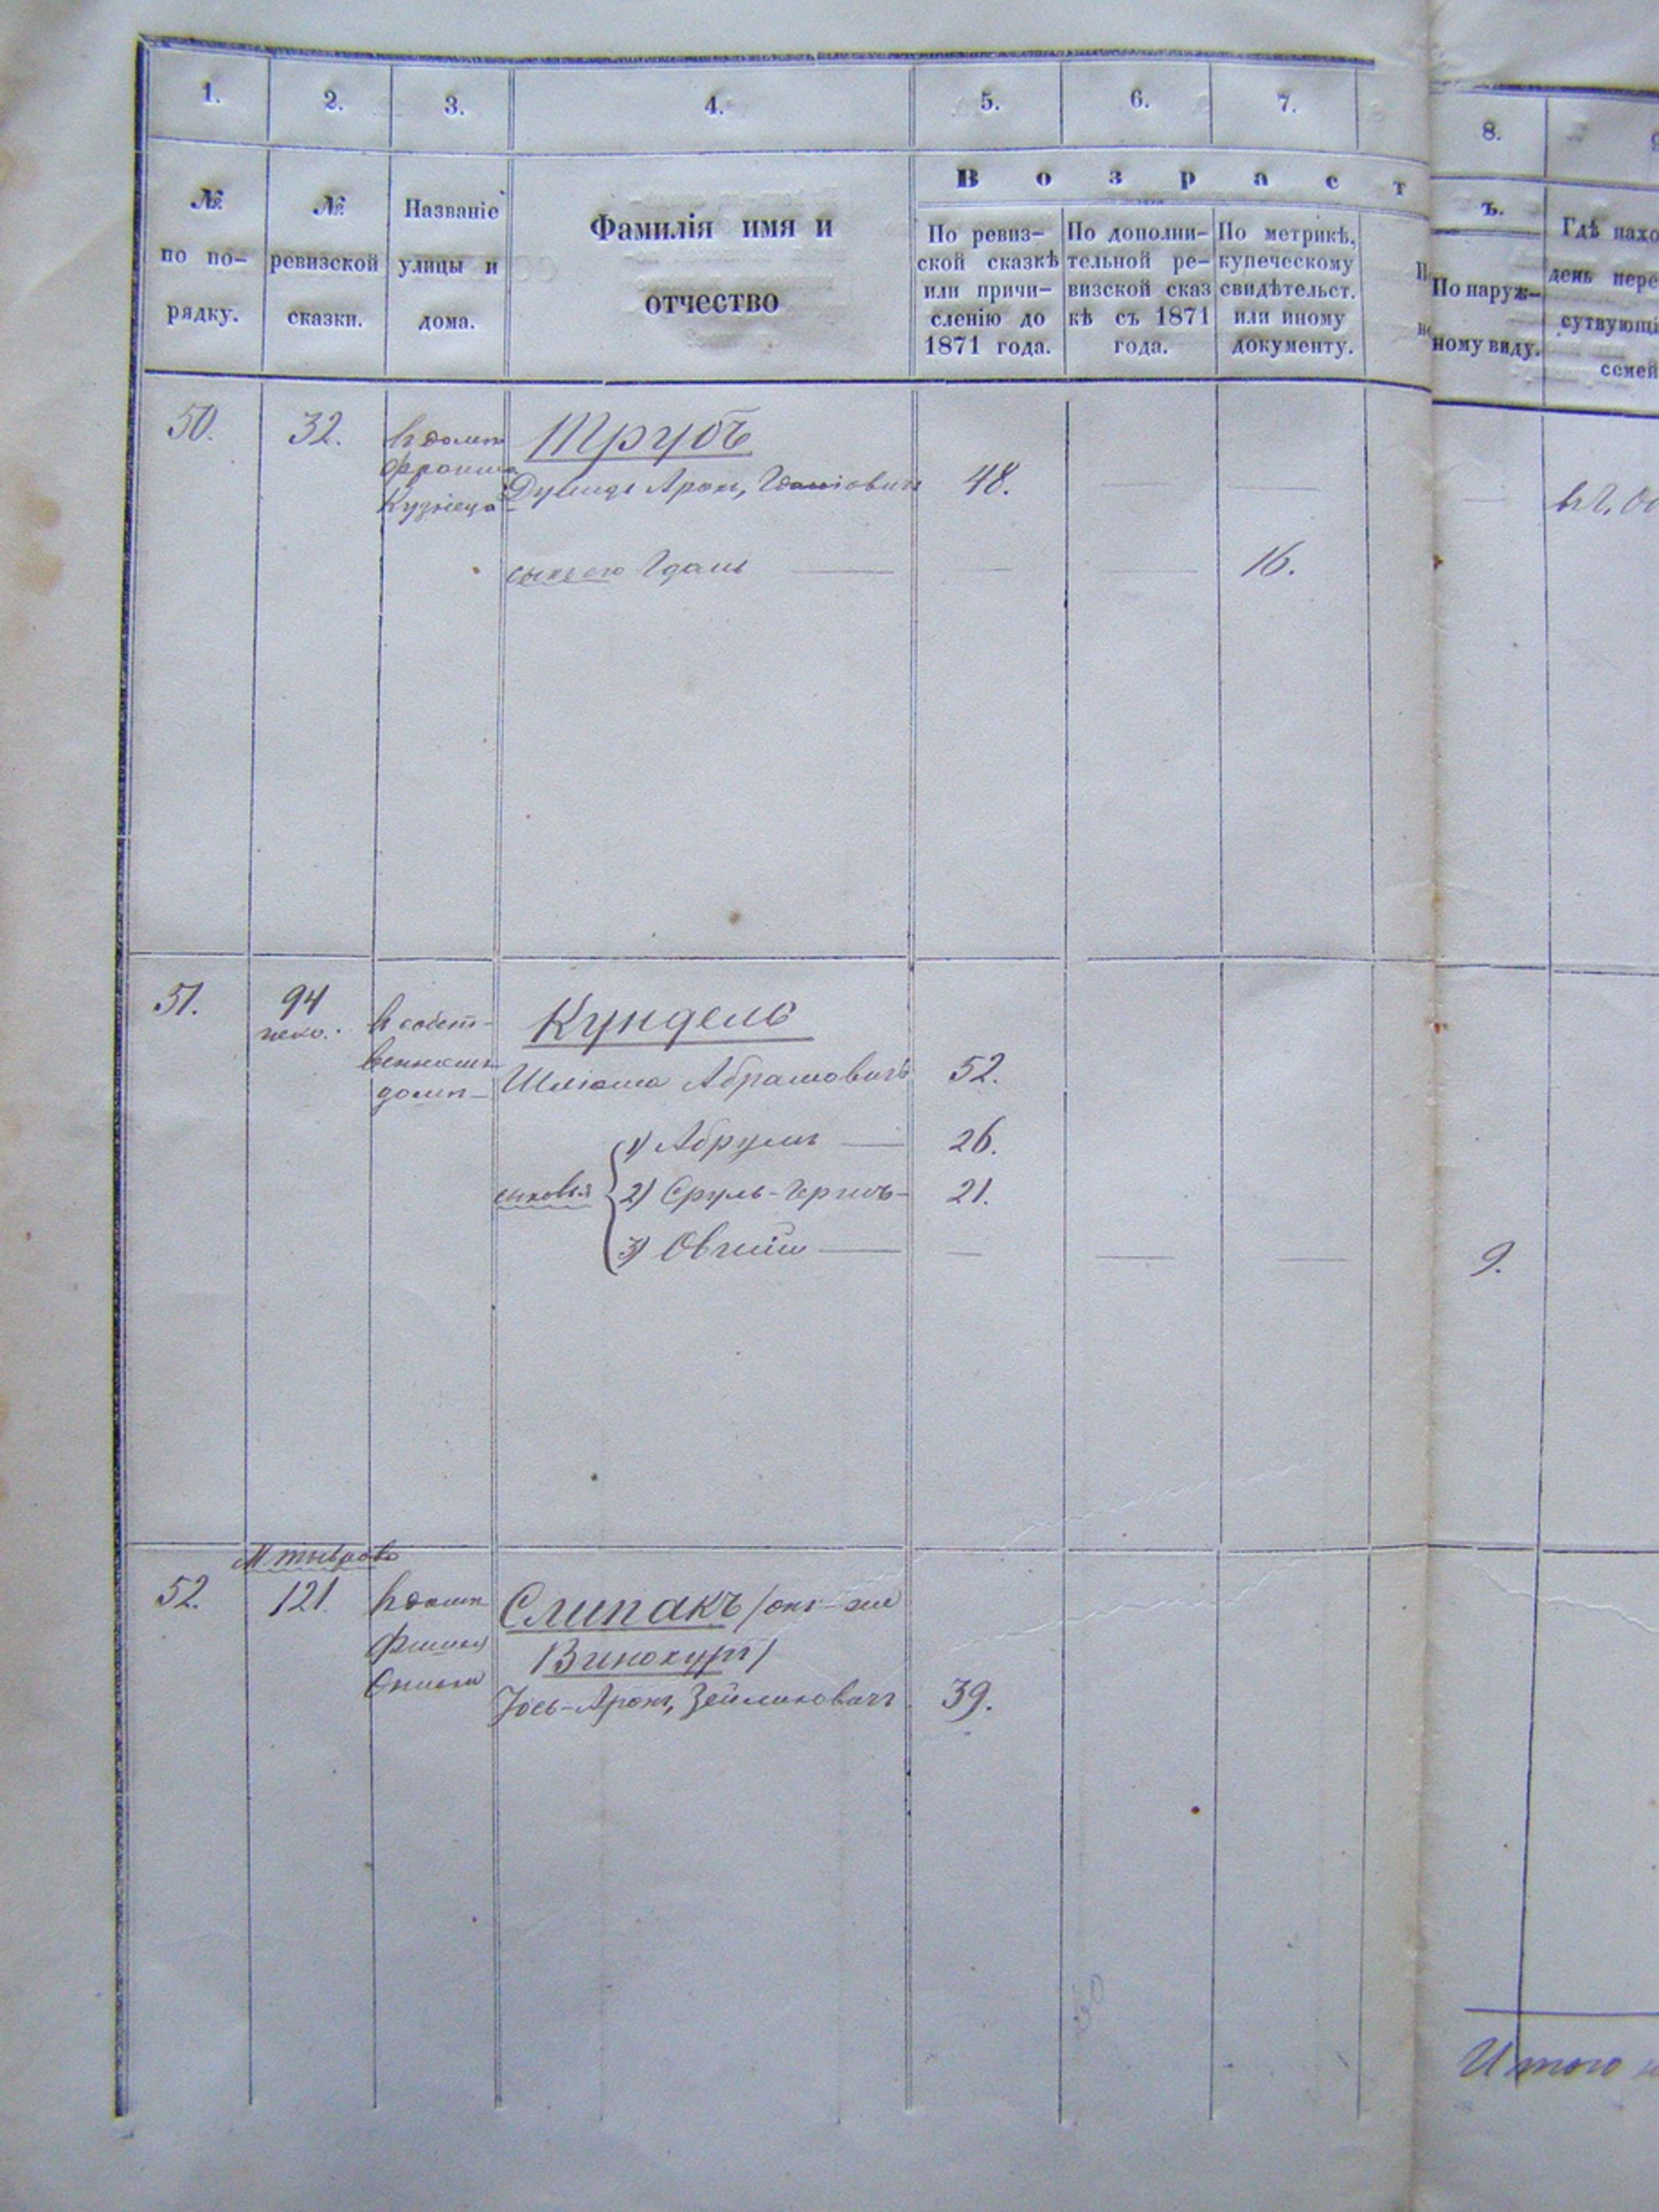 1. 2. 3. 4. 5. 6. 7. 8.
В о з р а с т ъ.
№ по по- рядку.
№ ревизской сказки.
Названіе улицы и дома.
Фамилія имя и
отчество
По ревиз-
ской сказкѣ
или причи-
сленію до
1871 года.
По дополни-
тельной ре-
визской сказ
кѣ съ 1871
года.
По метрикѣ,
купеческому
свидѣтельст.
или иному
документу.
По наруж-
ному виду.
Гдѣ нахо
день пере
сутвующі
семей
50. 32. въ домѣ Трубъ
Кузнеца Аронъ, 48.
сынъ его Гдаль — — — 16.
51. 94 въ собст- Кундель
венномъ
домѣ Шлиома Абрамовичъ 52.
1) Абрумъ — 26.
сыновья 2) Сруль-Гершъ - 21.
3) Овшій — — — — 9.
52. 121. въ домѣ Слипакъ /онъ-же
Винокуръ/
Іось-Аронъ, Зейликовичъ 39.
Итого